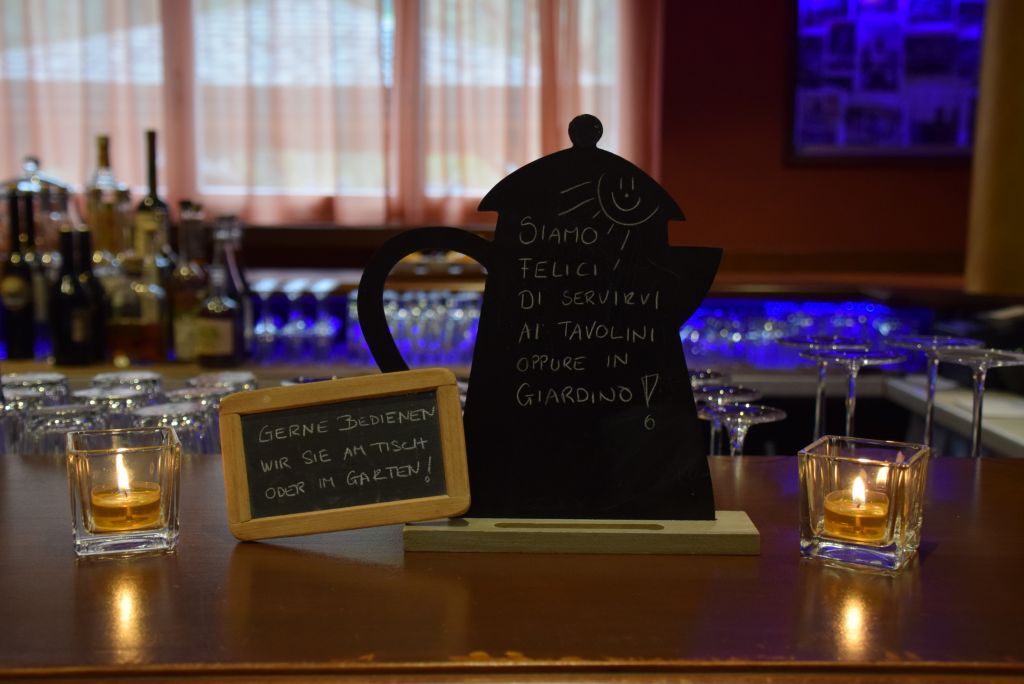 GERNE BEDIENEN
WIR SIE AM TISCH
ODER IM GARTEN!
SIAMO
FELICI
DI SERVIRVI
AI TAVOLINI
OPPURE IN
GIARDINO!